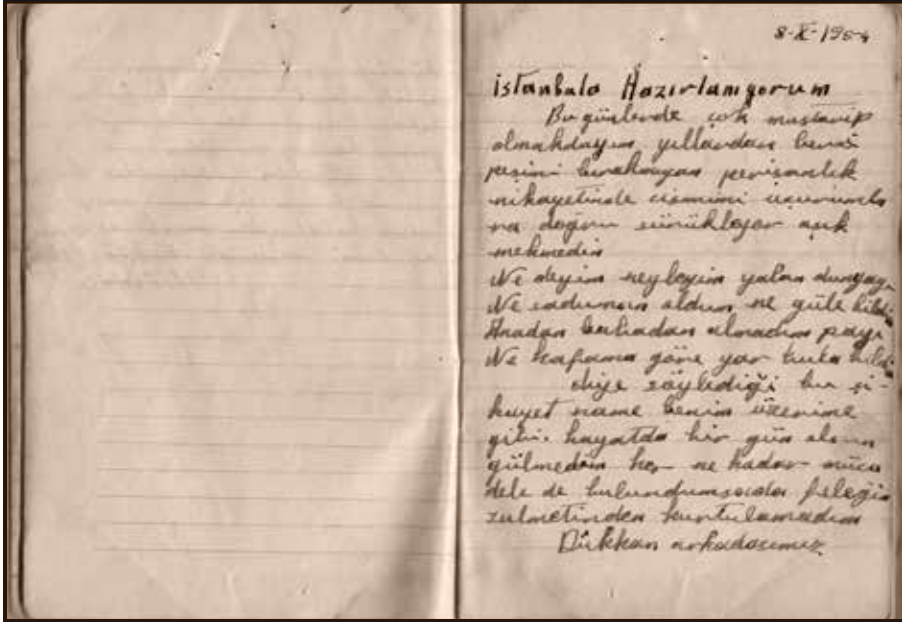 8-X-1954
istanbula Hazırlanıyorum
Bu günlerde çok mustarip
olmakdayım yıllardan beri
peşimi bırakmayan perişanlık
nihayetinde cismimi uçurumla
ra doğru sürüklüyor aşık
mehmedin
Ne deyim neyleyim yalan dunyayı
Ne oldum ne güle bildim
Anadan babadan almadım payı
Ne kafama göre yar bula bildim
diye söylediği bu şi-
kayet name benim üzerime
gibi. hayatda bir gün olsun
gülmedim her ne kadar müca
dele de bulundumsada feleğin
zulmetinden kurtulamadım
Dükkan arkadaşımız